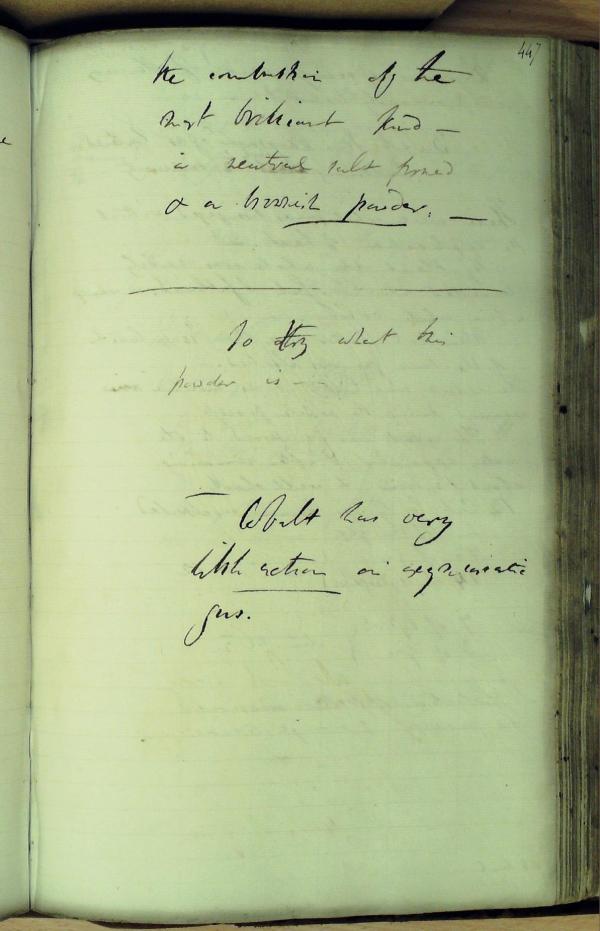 447
the combustion of the
most brilliant kind —
a neutral salt formed
& a brownish powder. —
To try what this
powder is — -
— Cobalt has very
little action on oxymuriatic
gas.